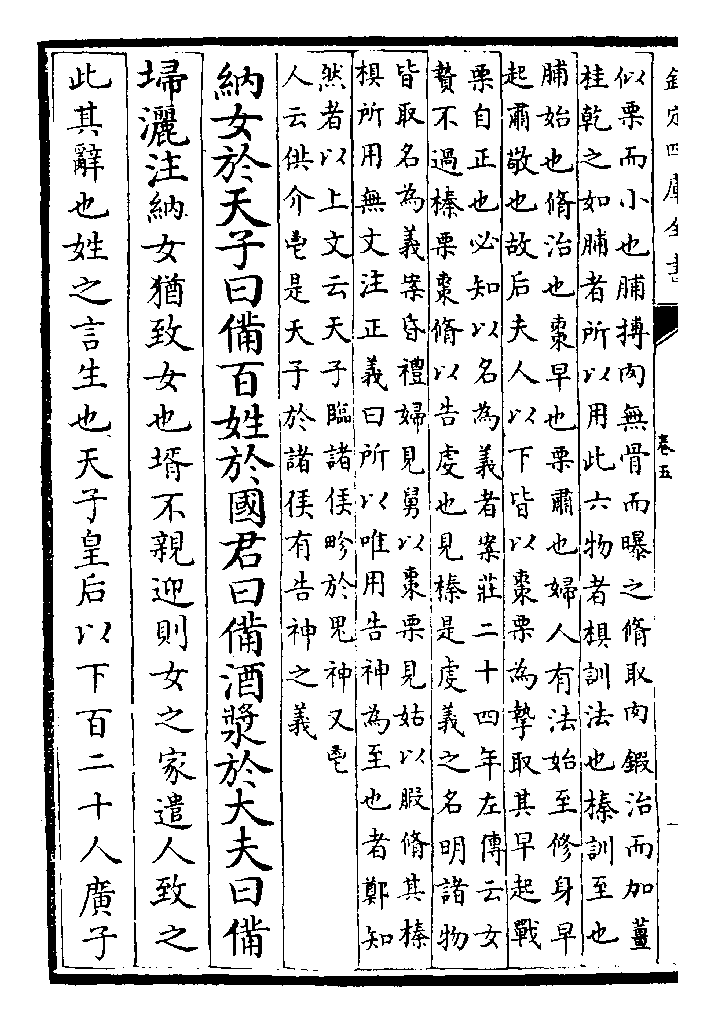 欽定四庫全書
卷五
似栗而小也脯搏肉無骨而曝之脩取肉鍛治而加薑
桂乾之如脯者所以用此六物者椇訓法也榛訓至也
脯始也脩治也棗早也栗肅也婦人有法始至修身早
起肅敬也故后夫人以下皆以棗栗為摯取其早起戰
栗自正也必知以名為義者案莊二十四年左傳云女
贄不過榛栗棗脩以告虔也見榛是虔義之名明諸物
皆取名為義案昏禮婦見舅以棗栗見姑以腶脩其榛
椇所用無文注正義曰所以唯用告神為至也者鄭知
然者以上文云天子臨諸侯畛於鬼神又鬯
人云供介鬯是天子於諸侯有告神之義
納女於天子曰備百姓於國君曰備酒漿於大夫曰備
埽灑注納女猶致女也壻不親迎則女之家遣人致之
此其辭也姓之言生也天子皇后以下百二十人廣子